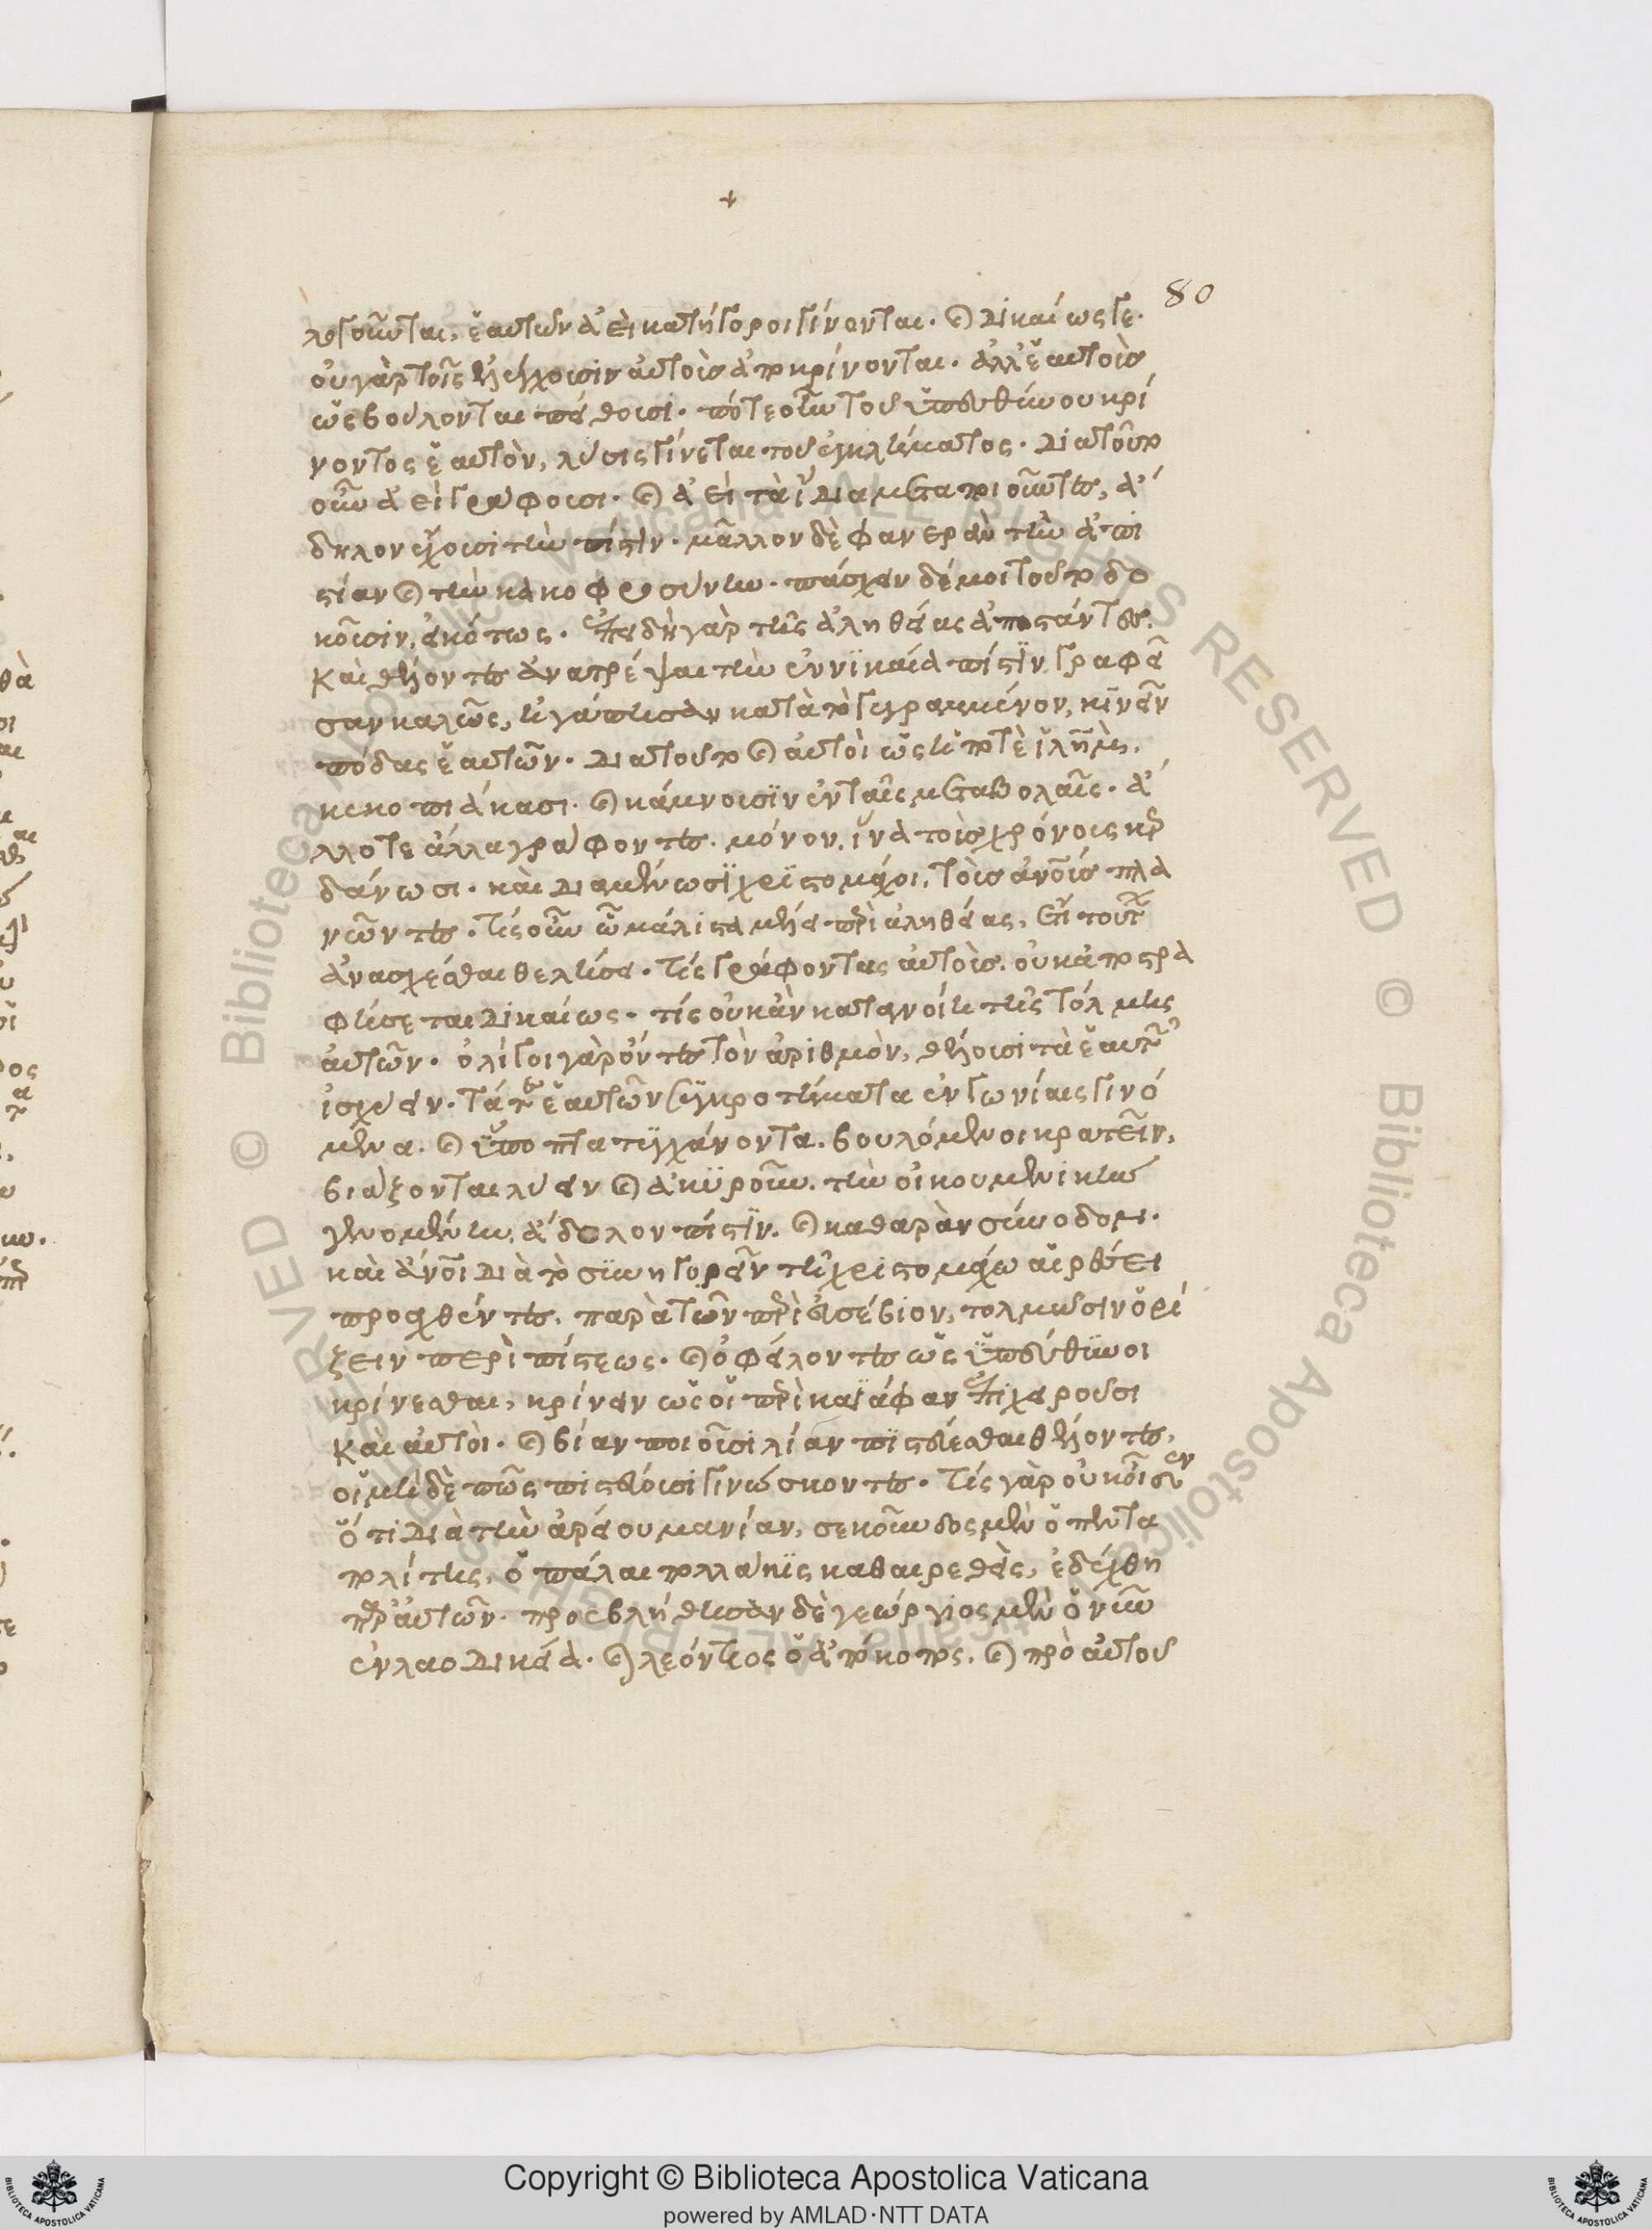 80
λογοῦνται, ἑαυτῶν ἀεὶ κατήγοροι γίνονται. καὶ δικαίως γε.
οὐ γὰρ τοῖς ἐλέγχουσιν αὐτοὺς ἀποκρίνονται. ἀλλ' ἑαυτοὺς
ὡς βούλονται πείθουσι. πότε οὖν τοῦ ὑπευθύνου κρί
νοντος ἑαυτὸν, λύσις γίνεται τοῦ ἐγκλήματος. διὰ τοῦτο
οὖν ἀεὶ γράφουσι. καὶ ἀεὶ τὰ ἴδια μεταποιοῦντες, ἄ
δηλον ἔχουσι τὴν πίστιν. μᾶλλον δὲ φανερὰν τὴν ἀπι
στίαν καὶ τὴν κακοφροσύνην. πάσχειν δέ μοι τοῦτο δο
κοῦσιν, εἰκότως. ἐπειδὴ γὰρ τῆς ἀληθείας ἀποστάντες.
καὶ θέλοντες ἀνατρέψαι τὴν ἐν νικαίᾳ πίστιν γραφεῖ
σαν καλῶς, ἠγάπησαν κατὰ τὸ γεγραμμένον, κινεῖν
πόδας ἑαυτῶν. διὰ τοῦτο καὶ αὐτοὶ ὡς ἡ ποτὲ ἱλῆμ,
κεκοπιάκασι. καὶ κάμνουσιν ἐν ταῖς μεταβολαῖς. ἄ
λλοτε ἄλλα γράφοντες. μόνον, ἵνα τοὺς χρόνους κερ
δάνωσι. καὶ διαμένωσι χριστομάχοι, τοὺς ἀνους πλα
νῶντες. τίς οὖν ᾧ μάλιστα μέλει περὶ ἀληθείας, ἔτι τούτων
ἀνασχέσθαι θελήσει. τίς γράφοντας αὐτοὺς. οὐκ ἀποστρα
φήσεται δικαίως. τίς οὐκ ἂν κατανοίη τῆς τόλμης
αὐτῶν. ὀλίγοι γὰρ ὄντες τὸν ἀριθμὸν, θέλουσι τὰ ἑαυτῶν
ἰσχύειν. τά τε ἑαυτῶν συγκροτήματα ἐν γωνίαις γινό
μενα. καὶ ὕποπτα τυγχάνοντα. βουλόμενοι κρατεῖν,
βιάζονται λύειν καὶ ἀκυροῦν. τὴν οἰκουμενικὴν
γενομένην, ἄδολον πίστιν. καὶ καθαρὰν σύνοδον.
καὶ ἄνοι διὰ τὸ συνηγορεῖν τῇ χριστομάχῳ αἱρέσει
προαχθέντες. παρὰ τῶν περὶ εὐσέβιον, τολμῶσιν ὁρί
ζειν περὶ πίστεως. καὶ ὀφείλοντες ὡς ὑπεύθυνοι
κρίνεσθαι, κρίνειν ὡς οἱ περὶ καϊάφαν ἐπιχειροῦσι
καὶ αὐτοὶ. καὶ βίαν ποιοῦσι λίαν πιστεύεσθαι θέλοντες,
οἳ μηδὲ πῶς πιστεύουσι γινώσκοντες. τίς γὰρ οὐκ οἶσεν
ὅτι διὰ τὴν ἀρείου μανίαν, σεκοῦνδος μὲν ὁ πεντα
πολίτης, ὁ πάλαι πολλάκις καθαιρεθεὶς, ἐδέχθη
παρ' αὐτῶν. προσεβλήθησαν δὲ γεώργιος μὲν ὁ νῦν
ἐν λαοδικείᾳ. καὶ λεόντιος ὁ ἀπόκοπος. καὶ πρὸ αὐτοῦ
Copyright © Biblioteca Apostolica Vaticana
powered by AMLAD·NTT DATA